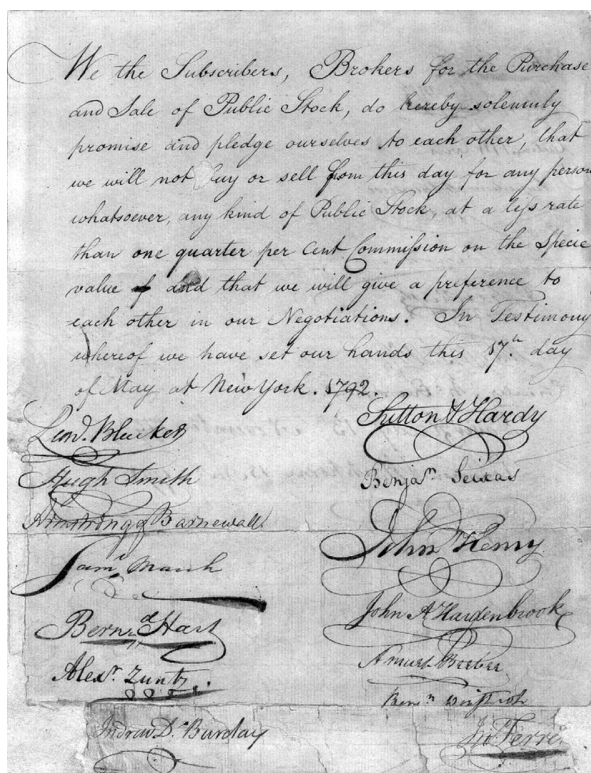 We the Subscribers, Brokers for the Purchase
and Sale of Public Stock, do hereby solemnly
promise and pledge ourselves to each other, that
we will not buy or sell from this day for any person
whatsoever, any kind of Public Stock, at a less rate
than one quarter per cent Commission on the Specie
value of and that we will give a preference to
each other in our Negotiations. In Testimony
whereof we have set our hands this 17th. day
of May at New York. 1792.
Leod. Bleecker
Hugh Smith
Armstrong & Barnewall
Saml. March
Bernd. Hart
Alexr. Zuntz.
Andrew D. Barclay
Sutton & Hardy
Benjan. Seixas
John Henry
John A Hardenbrook
Amuel Beebee
Benjn. Winthrop
Jno. Ferrers